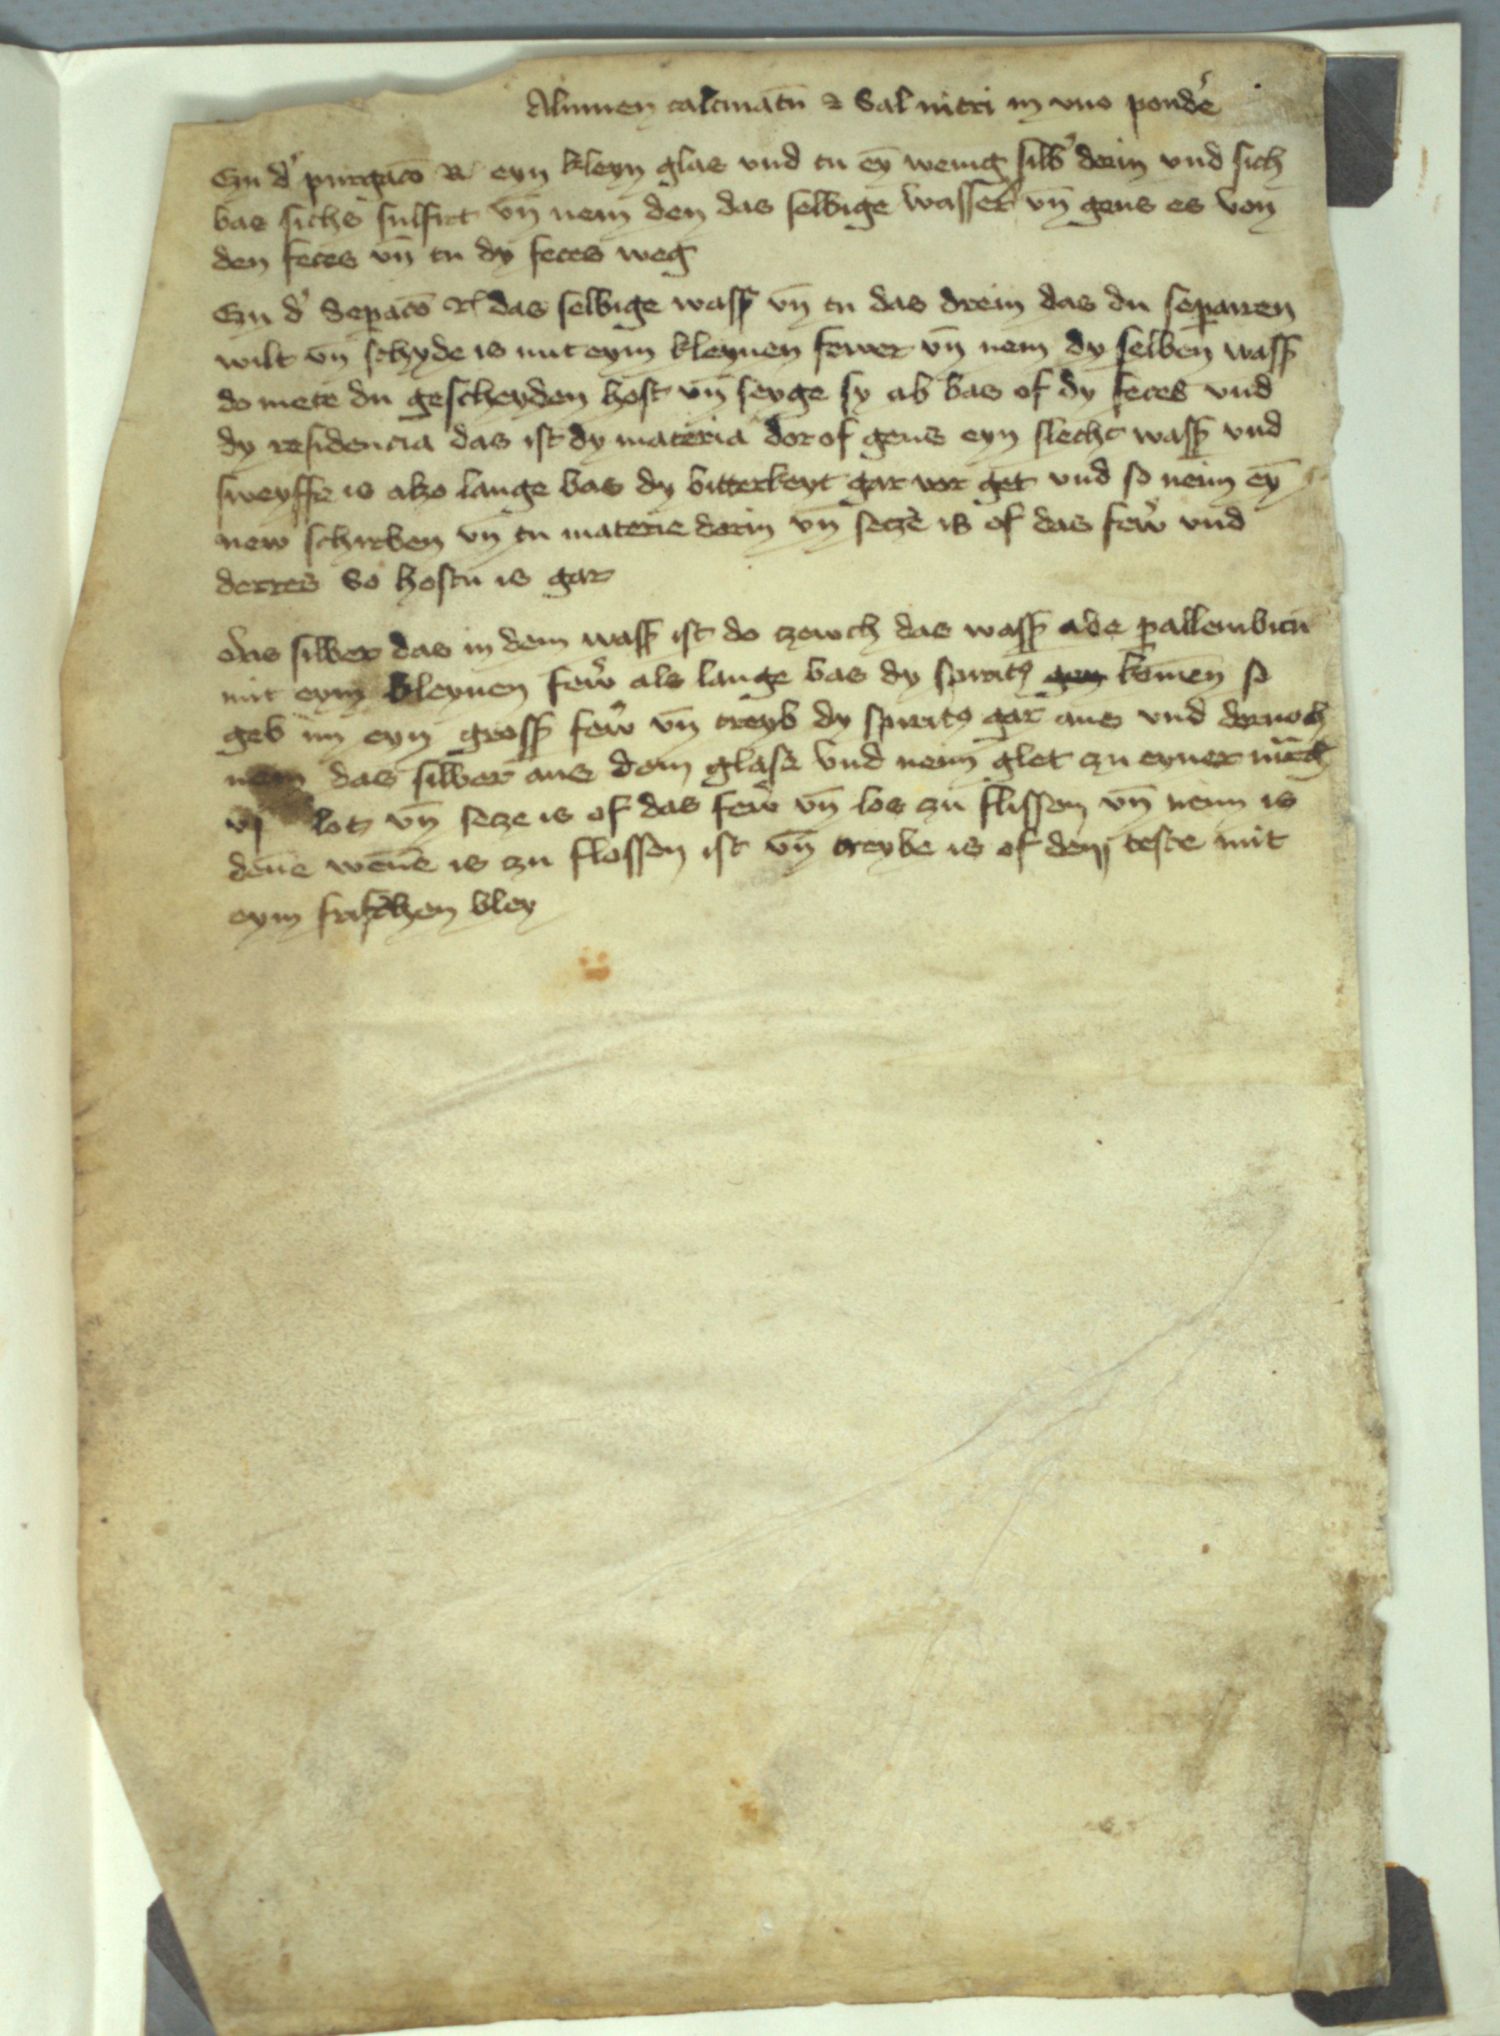 Alumen calcinatū ⁊ Sal nitri in vno pondʼe
Czu dʼ purgacō R eyn kleyn glas vnd tu eȳ wenig silbʼ dorin vnd sich
bas sichs sulfirt vn̄ nem den das selbige wasser vn̄ geus es von
den feces vn̄ tu dy feces weg
Czu dʼ Sepacō R das selbige wassʼ vn̄ tu das drein das du separiren
wilt vn̄ schyde is mit eym kleynen fewer vn̄ nem dy selben wassʼ
do mete du gescheyden host vn̄ seyge sy ab bas of dy feces vnd
dy residencia das ist dy materia dor of geus eyn slecht wassʼ vnd
sweysse is alzo lange bas dy bitterkeyt gar vor get vnd so nem eȳ
new schirben vn̄ tu materie dorin vn̄ setze is of das fewʼ vnd
derres So hostu is gar
Das silber das in dem wassʼ ist do czewch das wassʼ abe p allembicū
mit eym kleynen fewʼ als lange bas dy spirit9 komen so
geb im eyn grossʼ fewʼ vn̄ treyb dy spirit9 gar aus vnd dornoch
nem das silber aus dem glase vnd nem glet zu eyner mrck
vj lot vn̄ setze is of das fewʼ vn̄ los zu flissen vn̄ nem is
dēne wēne is zu flossen ist vn̄ treybe is of dem teste mit
eym frischen bley